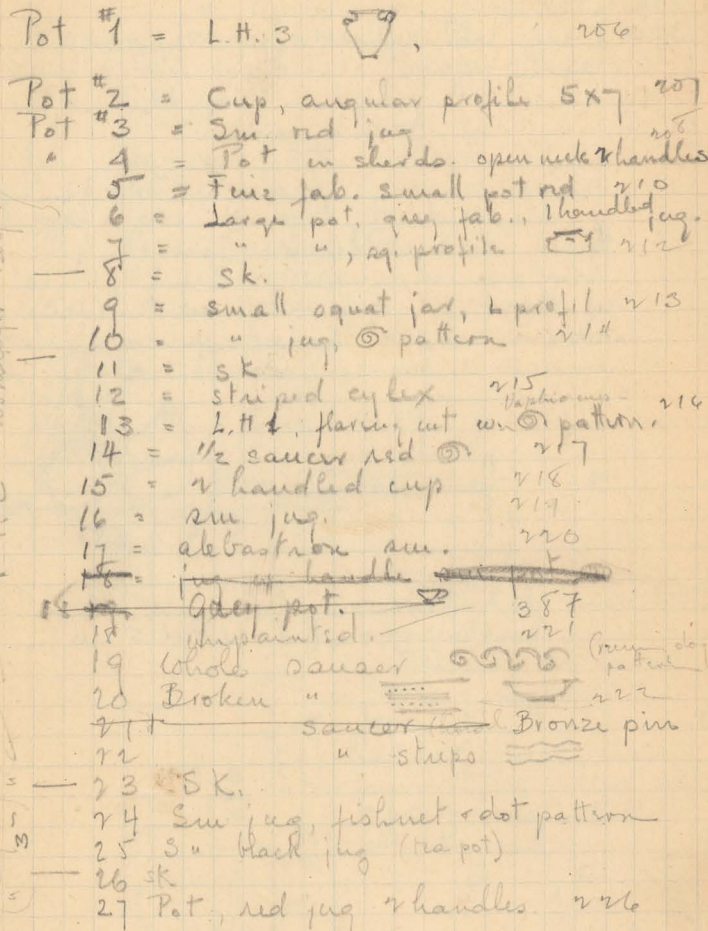 Pot #1 = L.H. 3 , 206
Pot #2 = Cup, angular profile 5x7 207
Pot #3 = Sm. red jug 208
" 4 = Pot in sherds. open neck 2 handles
5 = Fine fab. small pot red 210
6 = Large pot, grey fab., 1 handled jug.
7 = " ", sq. profile 212
8 = Sk.
9 = small squat jar, L profil 213
10 = " jug, pattern 214
11 = sk
12 = striped cylex 215
13 = L.H 1, flaring pattern. 216
14 = 1/2 saucer red 217
15 = 2 handled cup 218
16 = sm jug. 219
17 = alebastron sm. 220
18 = jug handle
18 19 Grey pot. 387
18 unpainted. 221
19 Whole saucer (running dog pattern)
20 Broken " 222
21 saucer Bronze pin
22 " strips
23 SK.
24 Sm jug, fishnet & dot pattern
25 S" black jug (tea pot)
26 sk
27 Pot, red jug 2 handles 226